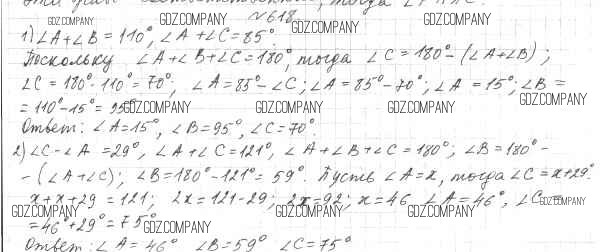 №618
1) ∠A+∠B=110°, ∠A+∠C=85°
Поскольку ∠A+∠B+∠C=180°, тогда ∠C=180°-(∠A+∠B);
∠C=180°-110°=70°, ∠A=85°-∠C; ∠A=85°-70°; ∠A=15°; ∠B=
=110°-15°=95°
Ответ: ∠A=15°, ∠B=95°, ∠C=70°.
2) ∠C-∠A=29°, ∠A+∠C=121°, ∠A+∠B+∠C=180°; ∠B=180°-
-(∠A+∠C); ∠B=180°-121°=59°. Пусть ∠A=x, тогда ∠C=x+29°.
x+x+29=121; 2x=121-29; 2x=92; x=46 ∠A=46°, ∠C=
=46°+29°=75°
Ответ: ∠A=46° ∠B=59° ∠C=75°
GDZ.COMPANY
GDZ.COMPANY
GDZ.COMPANY
GDZ.COMPANY
GDZ.COMPANY
GDZ.COMPANY
GDZ.COMPANY
GDZ.COMPANY
GDZ.COMPANY
GDZ.COMPANY
GDZ.COMPANY
GDZ.COMPANY
GDZ.COMPANY